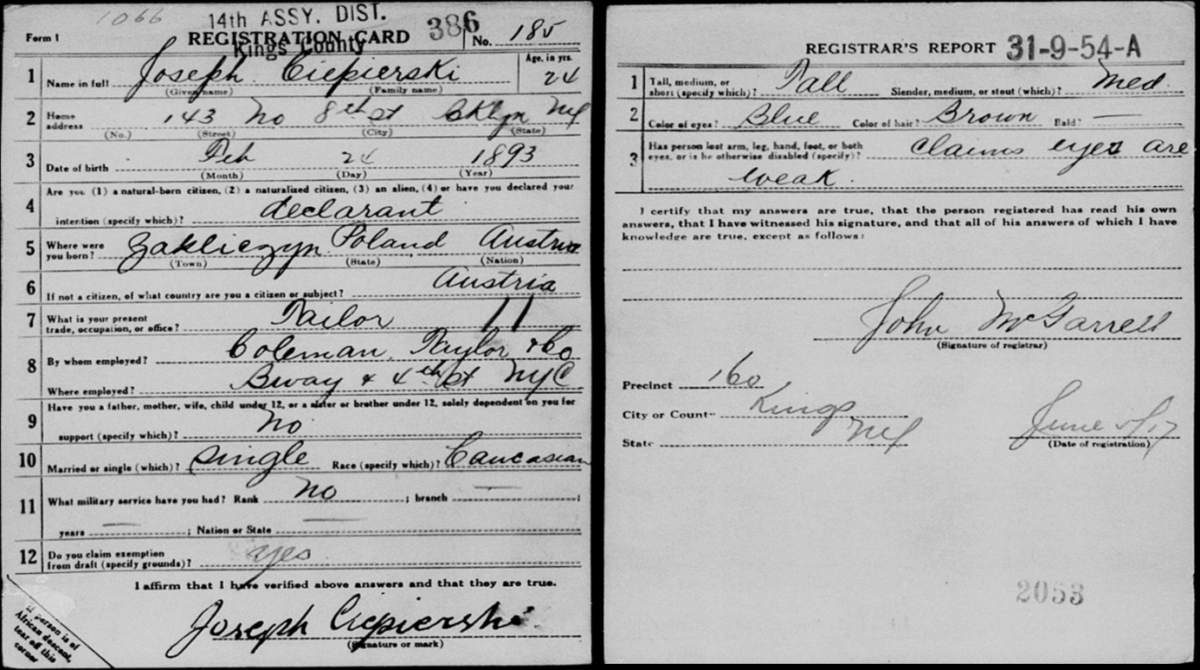 1066
14th ASSY. DIST.
Form 1 REGISTRATION CARD 386 No. 185
Kings County
1 Name in full Joseph Ciepierski Age, in yrs. 24
(Given name) (Family name)
2 Home address 143 No 8th St Bklyn NY
(No.) (Street) (City) (State)
3 Date of birth Feb 24 1893
(Month) (Day) (Year)
4 Are you (1) a natural-born citizen, (2) a naturalized citizen, (3) an alien, (4) or have you declared your
intention (specify which)? declarant
5 Where were you born? Zakliczyn Poland Austria
(Town) (State) (Nation)
6 If not a citizen, of what country are you a citizen or subject? Austria
7 What is your present trade, occupation, or office? Tailor 11
8 By whom employed? Coleman Taylor & Co
Where employed? Bway & 4th St NYC
9 Have you a father, mother, wife, child under 12, or a sister or brother under 12, solely dependent on you for
support (specify which)? No
10 Married or single (which)? Single Race (specify which)? Caucasian
11 What military service have you had? Rank No ; branch — ;
years — ; Nation or State —
12 Do you claim exemption from draft (specify grounds)? yes
I affirm that I have verified above answers and that they are true.
Joseph Ciepierski
(Signature or mark)
If person is of
African descent,
tear off this
corner
REGISTRAR'S REPORT 31-9-54-A
1 Tall, medium, or short (specify which)? Tall Slender, medium, or stout (which)? Med.
2 Color of eyes? Blue Color of hair? Brown Bald? —
3 Has person lost arm, leg, hand, foot, or both eyes, or is he otherwise disabled (specify)? Claims eyes are
weak.
I certify that my answers are true, that the person registered has read his own
answers, that I have witnessed his signature, and that all of his answers of which I have
knowledge are true, except as follows:
John McGarrell
(Signature of registrar)
Precinct 160
City or County Kings
State NY June 5/17
(Date of registration)
2053